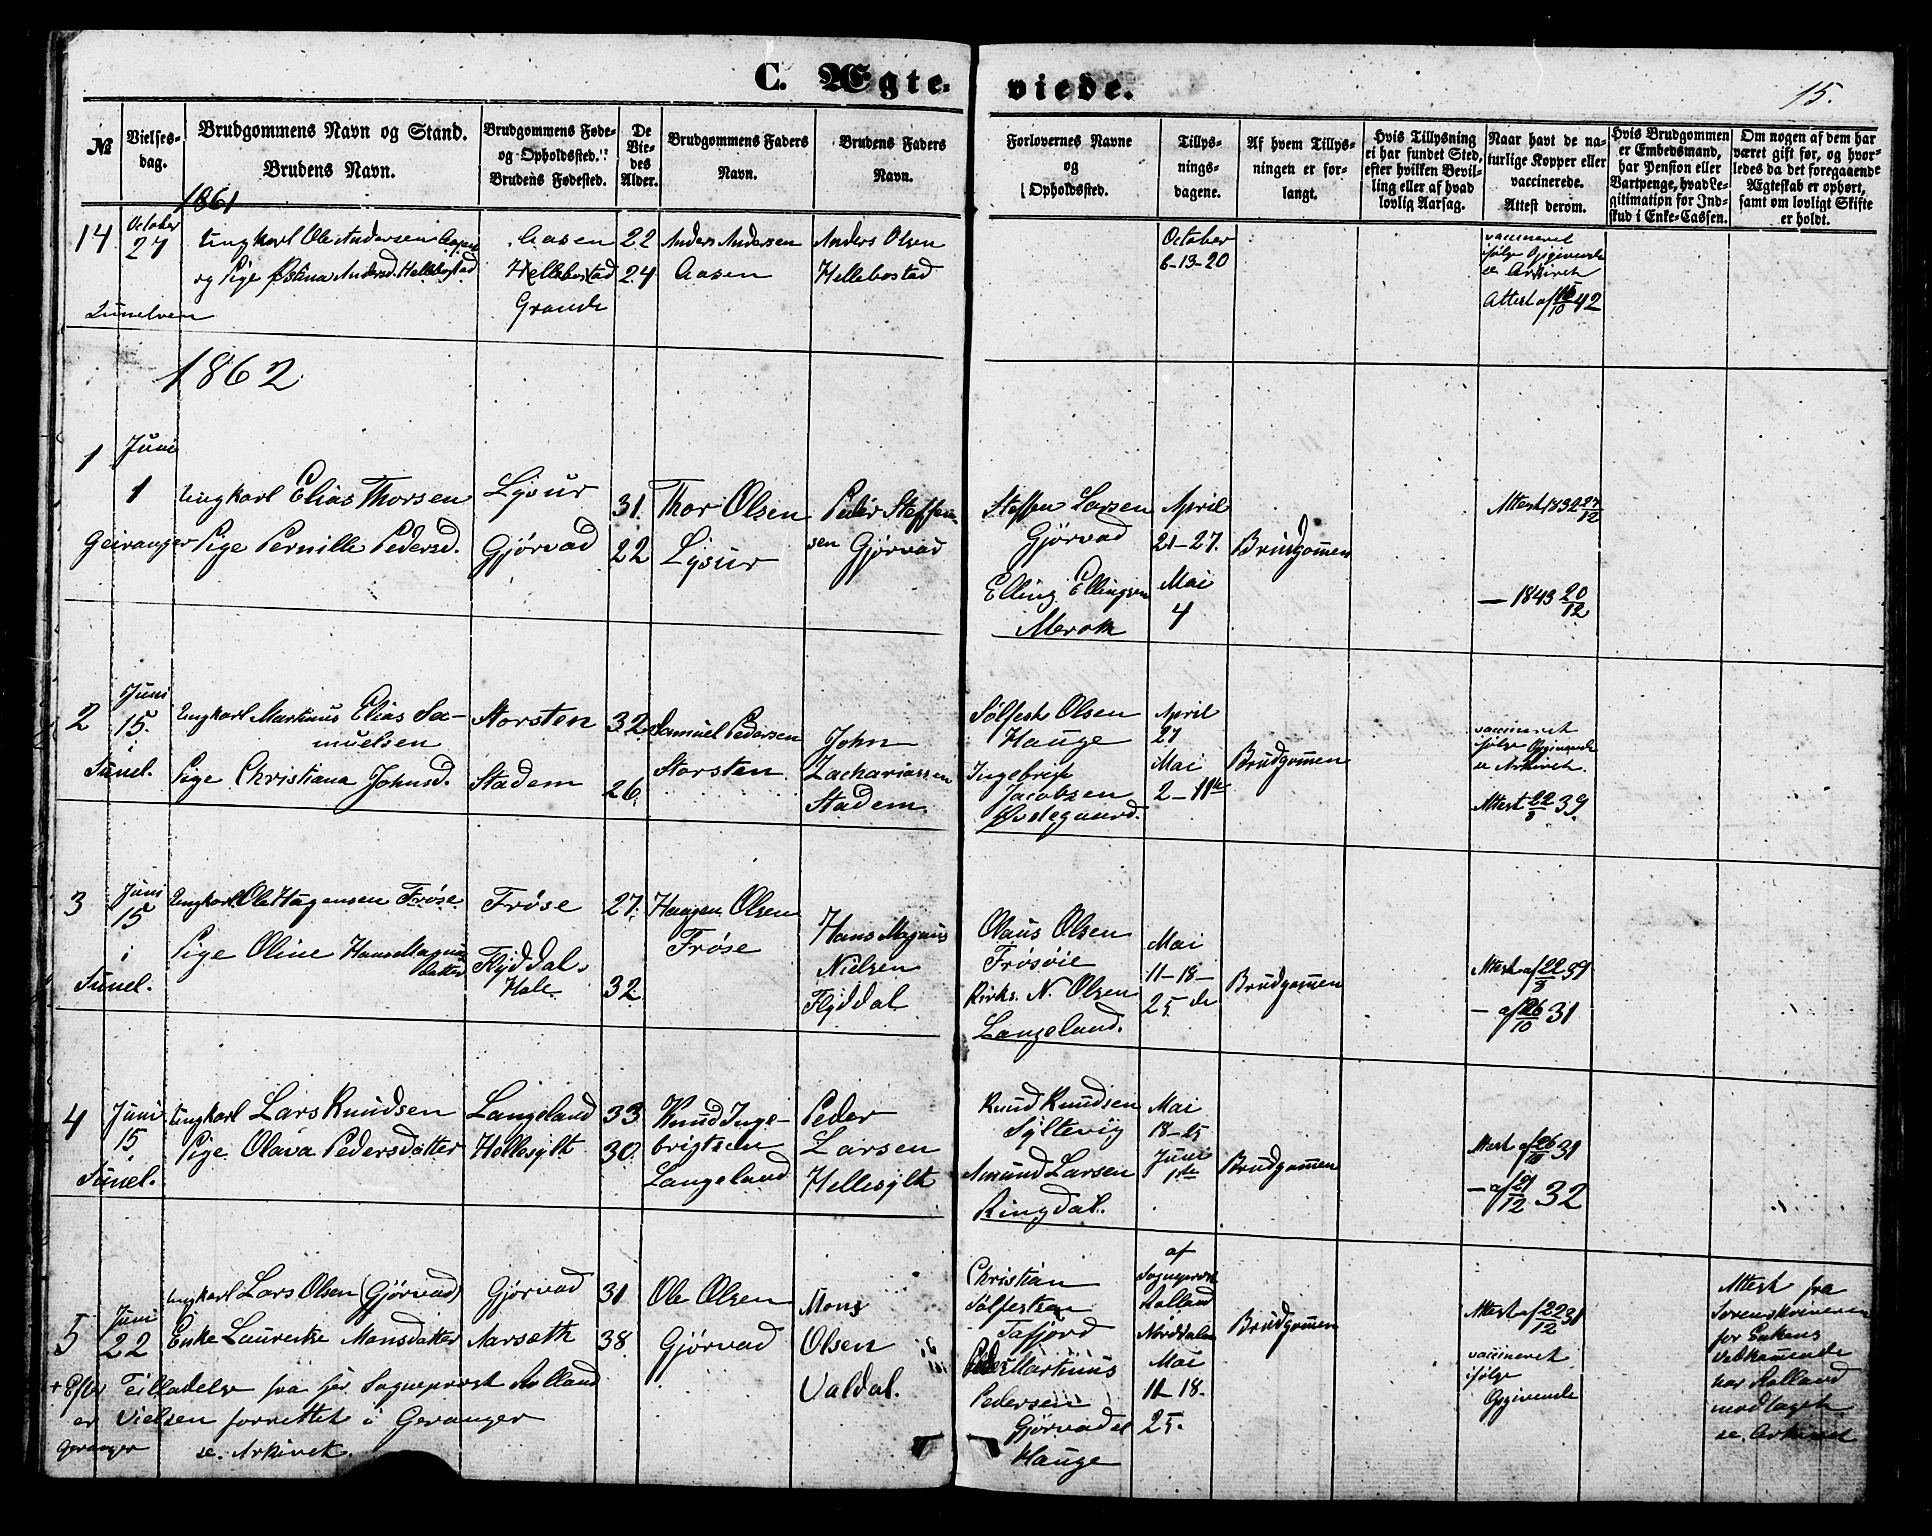 C. Ægte-
viede.
15.
№
Vielses-
dag.
Brudgommens Navn og Stand.
Brudens Navn.
Brudgommens Føde-
og Opholdssted.
Brudens Fødested.
De
Vie-
des
Alder.
Brudgommens Faders
Navn.
Brudens Faders
Navn.
Forlovernes Navne
og
Opholdssted.
Tillys-
nings-
dagene.
Af hvem Tillys-
ningen er for-
langt.
Hvis Tillysning
ei har fundet Sted,
efter hvilken Bevil-
ling eller af hvad
lovlig Aarsag.
Naar havt de na-
turlige Kopper eller
vaccinerede.
Attest derom.
Hvis Brudgommen
er Embedsmand,
har Pension eller
Vartpenge, hvad Le-
gitimation for Ind-
skud i Enke-Cassen.
Om nogen af dem har
været gift før, og hvor-
ledes da det foregaaende
Ægteskab er ophørt,
samt om lovligt Skifte
er holdt.
1861
14
October
27
Ungkarl Ole Andersen Aasen
og Pige Andersd. Hellebostad
Sunelven
Aasen
Hellebostad
Grande
22
24
Anders Andersen
Aasen
Anders Olsen
Hellebostad
October
6-13-20
vaccineret
ifølge Opgivende
se Arkivet
Attest af 15/10 42
1862
1
Juni
1
Geiranger
Ungkarl Elias Thorsen
Pige Pernille Pedersd.
Lysur
Gjørvad
31.
22
Thor Olsen
Lysur
Peder Steffen-
sen Gjørvad
Steffen Larsen
Gjørvad
Elling Ellingsen
Merok
April
21-27.
Mai
4
Brudgommen
Attest 1832 27/12
— 1843 20/12
2
Juni
15.
i
Sunel.
Ungkarl Martinus Elias Sa-
muelsen
Pige Christiana Johnsd.
Storsten
Stadem
32
26.
Samuel Pedersen
Storsten
John
Zachariassen
Stadem
Sølfest Olsen
Hauge
Ingebrigt
Jacobsen
Ødegaard.
April
27
Mai
2-11te
Brudgommen
vaccineret
ifølge Opgivende
se Arkivet.
Attest 22/3 39
3
Juni
15
i
Sunel.
Ungkarl Ole Hagensen Frøse
Pige Oline Hans Magnus
datter
Frøse
Flyddal.
Hole.
27.
32.
Haagen Olsen
Frøse
Hans Magnus
Nielsen
Flyddal
Olaus Olsen
Frøsøie
Kirks. N. Olsen
Langeland.
Mai
11-18-
25 de
Brudgommen
Attest af 22/3 39
— af 26/10 31
4
Juni
15
i
Sunel.
Ungkarl Lars Knudsen
Pige Olava Pedersdatter
Langeland
Hellesylt
33
30.
Knud Inge-
brigtsen
Langeland
Peder
Larsen
Hellesylt
Knud Knudsen
Syltevig
Amund Larsen
Ringdal.
Mai
18-25
Juni
1ste
Brudgommen
Attest af 26/10 31
— af 27/12 32
5
Juni
22
Ungkarl Lars Olsen (Gjørvad)
Enke Laurentse Monsdatter
Gjørvad
Aarseth
31
38.
Ole Olsen
Gjørvad
Mons
Olsen
Valdal.
Christian
Sølfestsen
Tafjord
Peder Martinus
Pedersen
Gjørvad el
Hauge
af
Sogneprest
Rolland
Norddalen
Mai
11-18.
25.
Brudgommen
Attest af 22/12 31
vaccineret
ifølge
Opgivende
Attest fra
Sorenskriveren
for Enkens
Vedkommende
har Rolland
modtaget
se. Arkivet
+ Efter Tilladelse fra hr. Sogneprest Rolland
er Vielsen forrettet i Geranger
Geranger
se. Arkivet.